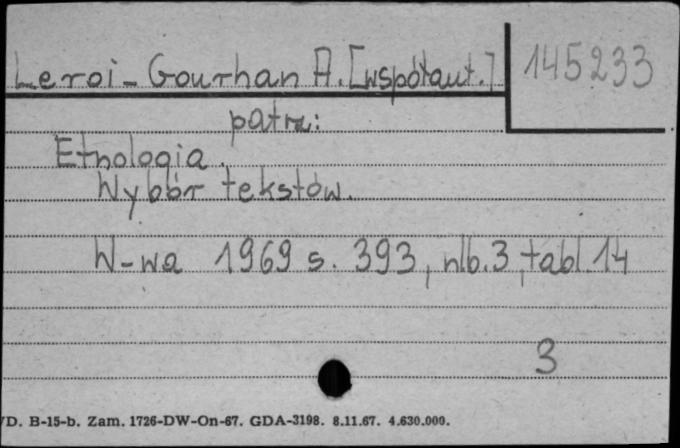 Leroi-Gourhan A. [współaut.] 145233
patrz:
Etnologia.
Wybór tekstów.
W-wa 1969 s. 393, nlb. 3, tabl. 14
3
D. B-15-b. Zam. 1726-DW-On-67. GDA-3198. 8.11.67. 4.630.000.